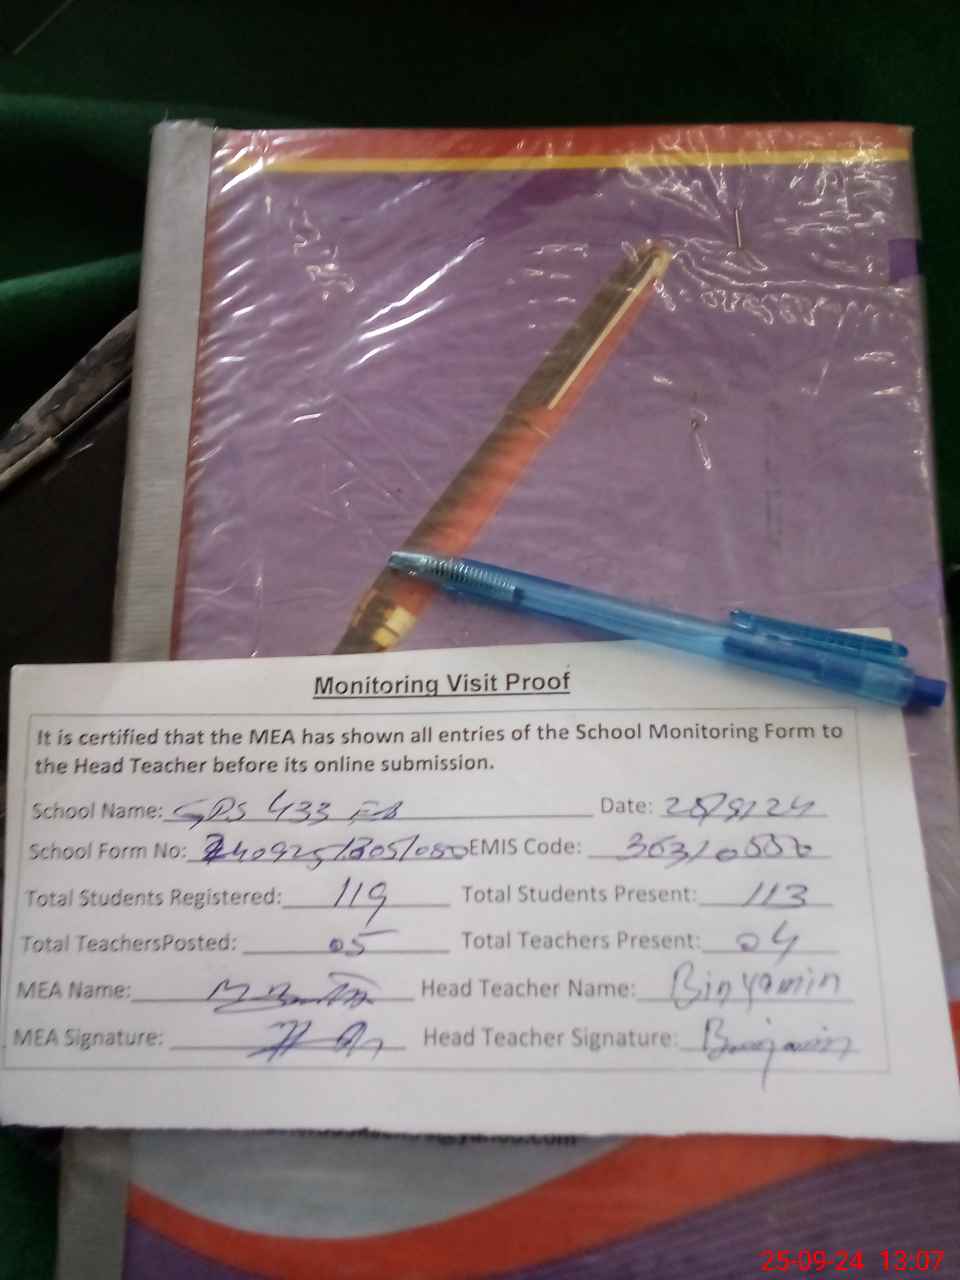 Monitoring Visit Proof
It is certified that the MEA has shown all entries of the School Monitoring Form to
the Head Teacher before its online submission.
School Name: GPS 433 EB Date: 25/9/24
School Form No: EMIS Code:
Total Students Registered: 119 Total Students Present: 113
Total TeachersPosted: 05 Total Teachers Present: 04
MEA Name: Head Teacher Name: Binyamin
MEA Signature: Head Teacher Signature: Binyamin
25-09-24 13:07